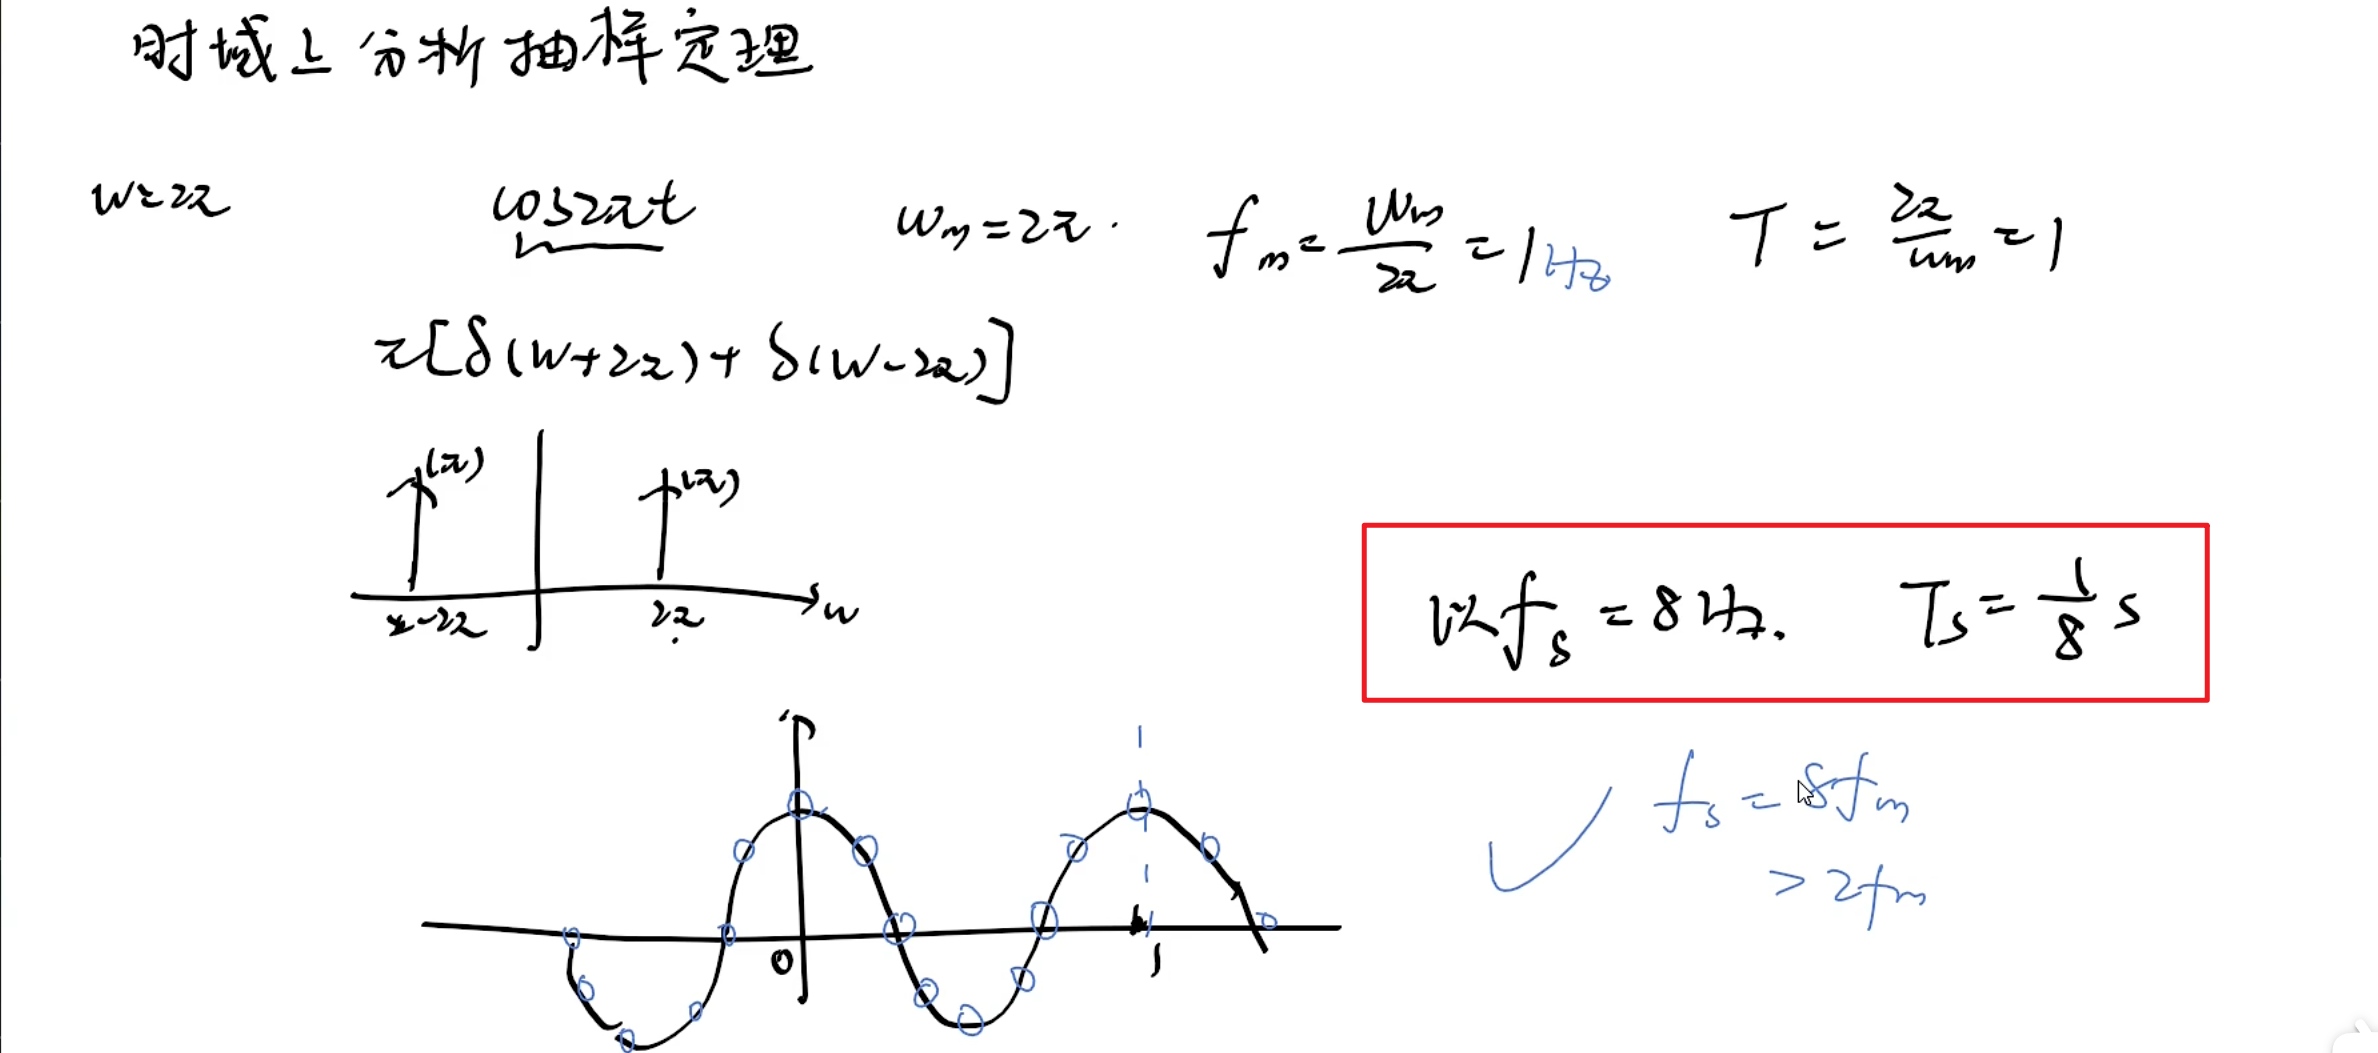 时域上分析抽样定理
w=2π cos2πt wm=2π. fm=wm/2π=1Hz T=2π/wm=1
π[δ(w+2π)+δ(w-2π)]
(π) (π)
-2π 2π w
以fs=8Hz. Ts=1/8 s
fs=8fm
>2fm
0 1